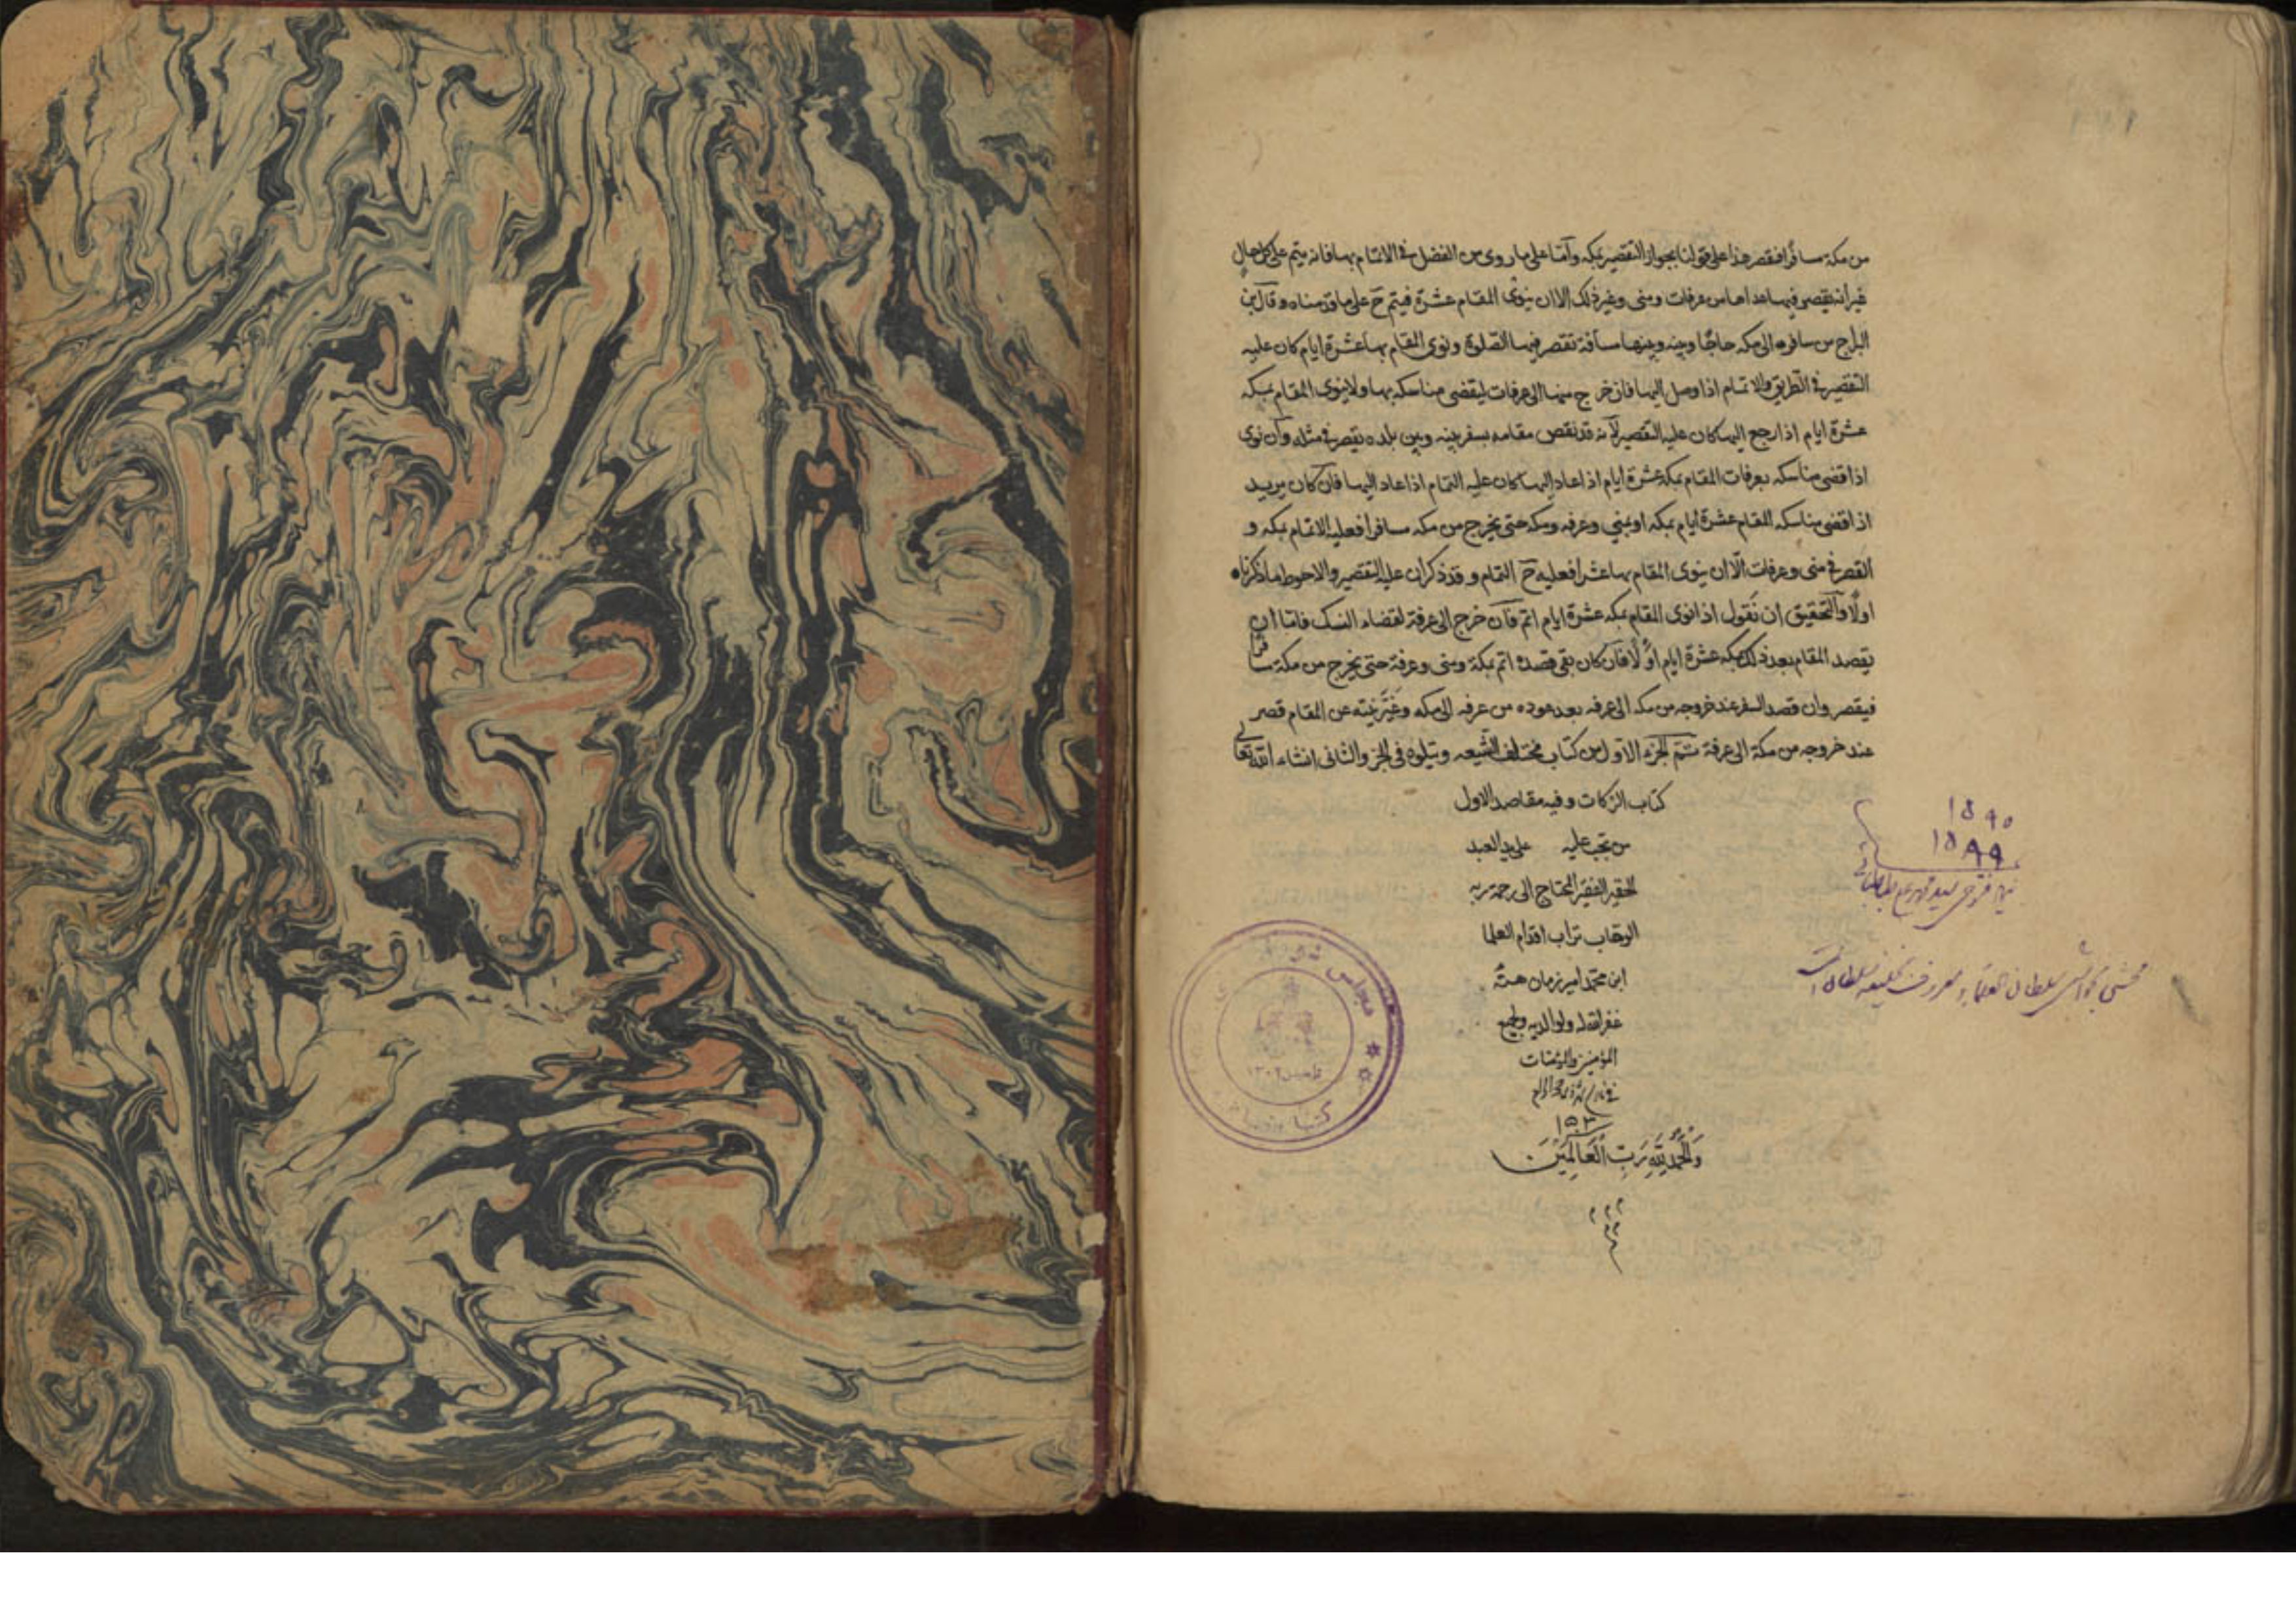 من مكة مسافرا فيقصر هذا على قولنا بجواز التقصير بمكه وأما على ما روى من الفضل في الاتمام بها فانه يتم على كل حال
غير أنه يقصر فيما عداها من عرفات ومنى وغير ذلك الا ان ينوى المقام عشرة فيتم ح على ما قدمناه وقال ابن
البراج من سافر الى مكه حاجا وبينه وبينها مسافة تقصر فيها الصلوة ونوى المقام بها عشرة ايام كان عليه
التقصير في الطريق والاتمام اذا وصل اليها فان خرج منها الى عرفات ليقضى مناسكه بها ولا ينوى المقام بمكه
عشرة ايام اذا رجع اليها كان عليه التقصير لأنه قد نقص مقامه بسفر بينه وبين بلده يقصر في مثله وان نوى
اذا قضى مناسكه بعرفات المقام بمكه عشرة ايام اذا عاد اليها كان عليه التمام اذا عاد اليها فان كان يريد
اذا قضى مناسكه المقام عشرة ايام بمكه او بمنى وعرفه ومكه حتى يخرج من مكه مسافرا فعليه الاتمام بمكه و
القصر في منى وعرفات الّا ان ينوى المقام بها عشرا فعليه ح التمام وقد ذكر ان عليه التقصير والاحوط ما ذكرناه
اولًا والتحقيق ان نقول اذا نوى المقام بمكه عشرة ايام اتم فان خرج الى عرفة لقضاء النسك فاما ان
يقصد المقام بعد ذلك بمكه عشرة ايام أو لا فان كان بقى قصده اتم بمكة ومنى وعرفة حتى يخرج من مكة مسافرا
فيقصر وان قصد السفر عند خروجه من مكه الى عرفه بعد عوده من عرفه الى مكه وغيّر نيته عن المقام قصر
عند خروجه من مكة الى عرفة تتم الجزء الاول من كتاب مختلف الشيعه ويتلوه فى الجزء والثانى انشاء الله تعالى
كتاب الزكات وفيه مقاصد الاول
من تجب عليه على يد العبد
الحقير الفقير المحتاج الى رحمة ربه
الوهاب تراب اقدام العلما
ابن محمد امير زمان
غفر الله له ولوالديه ولجميع
المؤمنين والمؤمنات
وَالْحَمْدُ لِلّهِ رَبِّ الْعَالَمِيْنَ
١٥٩٠
١٥٨٩٩
مجلس
تاسيس ١٣٠٢